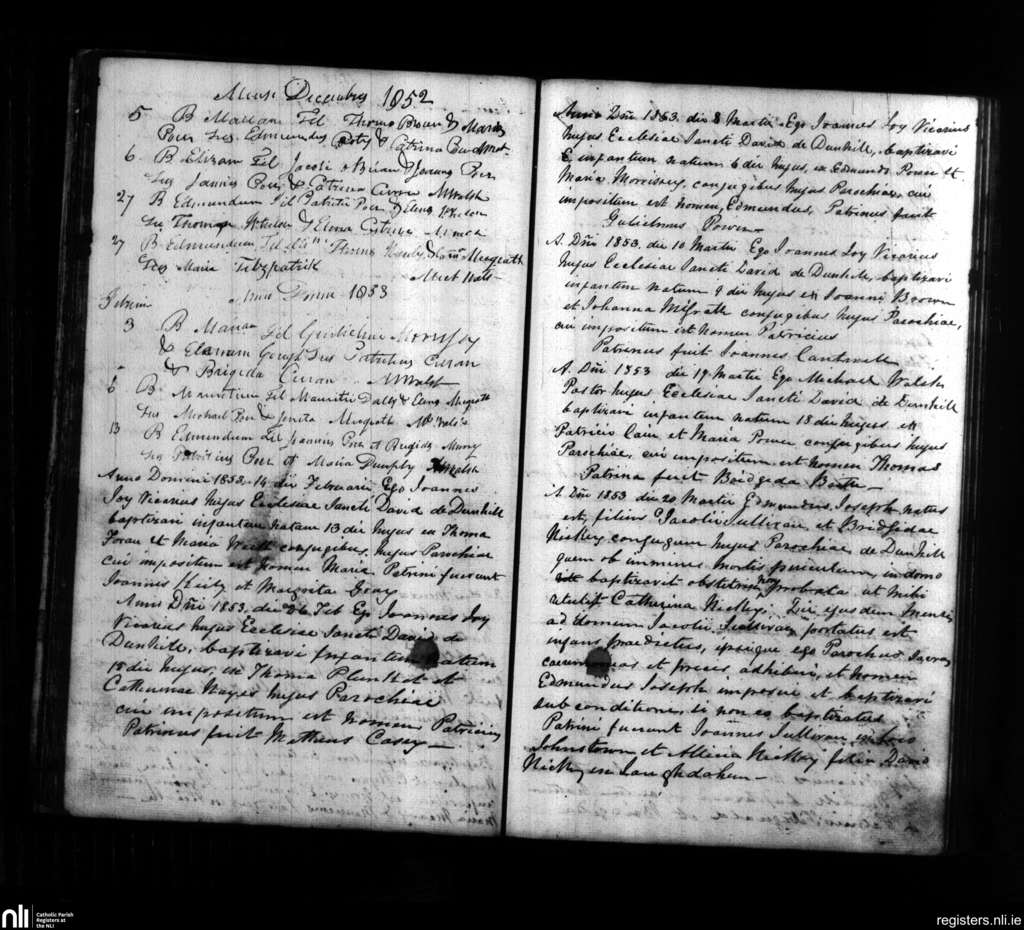 Mense Decembris 1852
5 B Mariam Fil Thoma Brown & Maria
Power Sus Edmundus &Catrina
6 B Elizam Fil Jacobi OBrian & Joanna Power
Sus Jannis Power & Catrina MWalsh
27 B Edmundum Fil Patritii Power & Elena
Sus Thomas & Elena
27 B Edmundum Fil Thoma & Megrath
Sus Maria Fitzpatrick
Anno Domini 1853 Mich Wals
Februarii
3 B Mariam Fil Gulielmi Morrissy
& Elenam Gough Sus Patritius Curan
& Brigida Curan MWalsh
6 B Mauritium Fil Mauritii Daly & Elena Megrath
Sus Michael Power & Megrath
13 B Edmundum Fil Joannis Power et Brigida
Sus Patritius Power et Maria Dunphy MWalsh
Anno Domini 1853. 14 die Februarii Ego Joannes
Joy Vicarius hujus Ecclesiae Sancti David de Dunhill
baptizavi infantem natam 13 die hujus ex Thoma
Foran et Maria conjugibus hujus Parochiae
cui impositum est nomen Maria Patrini fuerunt
Joannis Kiely et Margrita Gray
Anno Dñi 1853. die 26 Feb Ego Joannes Joy
Vicarius hujus Ecclesiae Sancti David de
Dunhill, baptizavi Infantem natum
18 die hujus, ex Thoma Plunket et
Catherinae Hayes hujus Parochiae
cui impositum est nomen Patricius
Patrinus fuit Matheus Casey —
Anno Dñi 1853. die 8 Martii Ego Joannes Joy Vicarius
hujus Ecclesiae Sancti David de Dunhill, baptizavi
infantem natum 6 die hujus, ex Edmundo Power et
Maria Morrissey, conjugibus hujus Parochiae, cui
impositum est nomen, Edmundus, Patrinus fuit
Gulielmus Power —
A. Dñi 1853. die 10 Martii Ego Joannes Joy Vicarius
hujus Ecclesiae Sancti David de Dunhill, baptizavi
infantem natum 9 die hujus ex Joanni Brown
et Johanna McGrath conjugibus hujus Parochiae,
cui impositum est nomen Patricius
Patrinus fuit Joannes Cantwell
A. Dñi 1853 die 19 Martii Ego Michael Walsh
Pastor hujus Ecclesiae Sancti David de Dunhill
baptizavi infantem natum 18 die hujus ex
Patricio Cain et Maria Power conjugibus hujus
Parochiae, cui impositum est nomen Thomas
Patrina fuit Bridgida —
A. Dñi 1853 die 20 Martii Edmundus Joseph natus
est, filius Jacobi Sullivan et Bridgidae
Nickey conjugum hujus Parochiae de Dunhill
quem ob imminens mortis periculum, in domo
baptizavit obstetrix non probata ut mihi
Catherina Nickey: Die ejusdem mensis
ad domem Jacobi Sullivan portatus est
infans praedictus, ipsique ego Parochus sacras
caeremonias et preces adhibui, et nomen
Edmundus Joseph imposui et baptizavi
sub conditione, si non es baptizatus
Patrini fuerunt Joannes Sullivan
Johnstown et Allicia Nickey filia David
Nickey
nli
Catholic Parish
Registers at
the NLI
registers.nli.ie